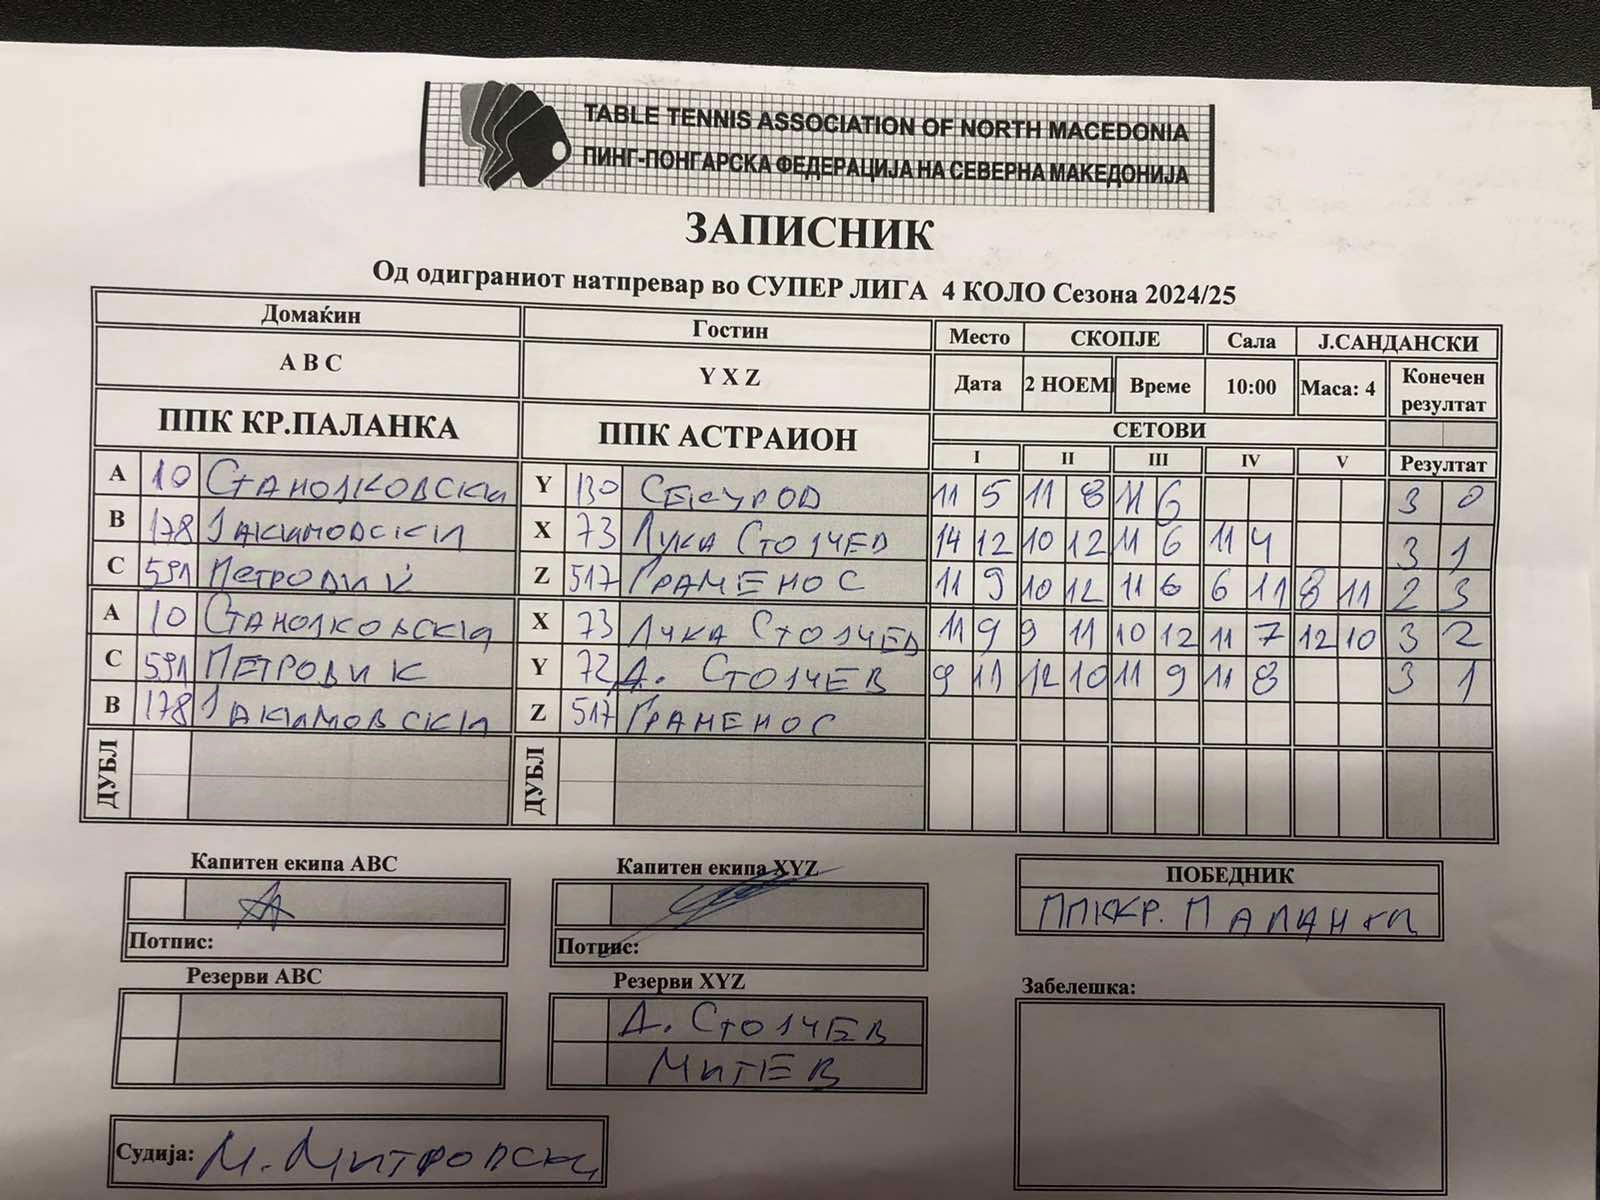 TABLE TENNIS ASSOCIATION OF NORTH MACEDONIA
ПИНГ-ПОНГАРСКА ФЕДЕРАЦИЈА НА СЕВЕРНА МАКЕДОНИЈА
ЗАПИСНИК
Од одиграниот натпревар во СУПЕР ЛИГА 4 КОЛО Сезона 2024/25
Домаќин Гостин Место СКОПЈЕ Сала Ј.САНДАНСКИ
A B C Y X Z Дата 2 НОЕМ Време 10:00 Маса: 4 Конечен резултат
ППК КР.ПАЛАНКА ППК АСТРАИОН СЕТОВИ
I II III IV V Резултат
A 10 Станојковски Y 130 11 5 11 8 11 6 3 0
B 178 Јакимовски X 73 Лука Стојчев 14 12 10 12 11 6 11 4 3 1
C 591 Петровиќ Z 517 Граменос 11 9 10 12 11 6 6 11 8 11 2 3
A 10 Станојковски X 73 Лука Стојчев 11 9 9 11 10 12 11 7 12 10 3 2
C 591 Петровиќ Y 72 Д. Стојчев 9 11 12 10 11 9 11 8 3 1
B 178 Јакимовски Z 517 Граменос
ДУБЛ ДУБЛ
Капитен екипа ABC Капитен екипа XYZ ПОБЕДНИК
ППК КР. ПАЛАНКА
Потпис: Потпис:
Резерви ABC Резерви XYZ Забелешка:
Д. Стојчев
Митев
Судија: М. Митровски